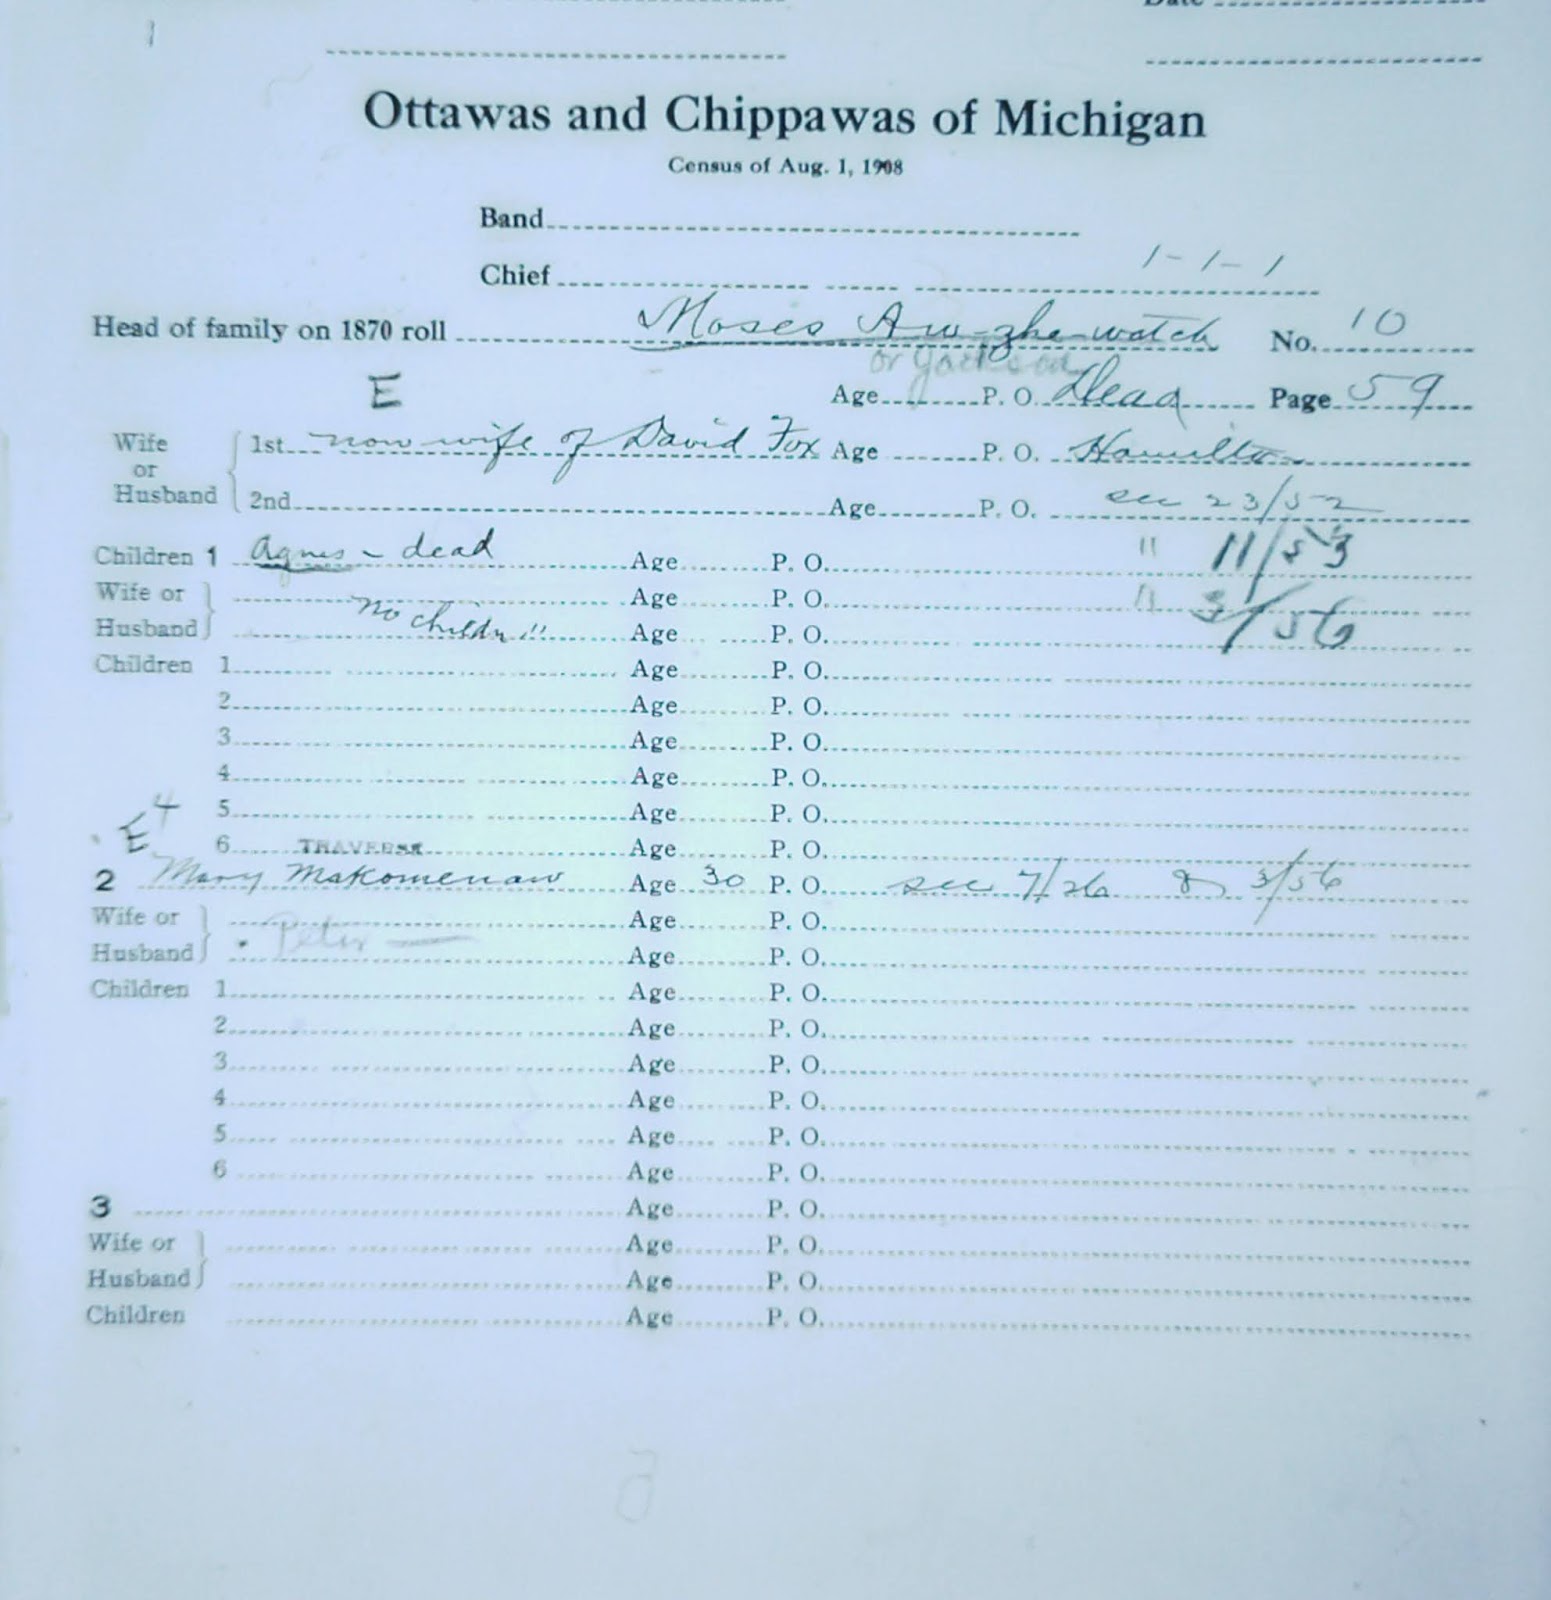 1
Date
Ottawas and Chippawas of Michigan
Census of Aug. 1, 1908
Band
Chief 1-1-1
Head of family on 1870 roll Moses Aw-zhe-watch No. 10
or Jackson
E Age P. O. Dead Page 59
Wife or Husband 1st now wife of David Fox Age P. O. Hamilton
2nd Age P. O. see 23/52
Children 1 Agnes - dead Age P. O. " 11/53
Wife or Age P. O. " 3/56
Husband no childn !! Age P. O.
Children 1 Age P. O.
2 Age P. O.
3 Age P. O.
4 Age P. O.
E 4 5 Age P. O.
6 TRAVERSE Age P. O.
2 Mary Makomenaw Age 30 P. O. see 7/26 & 3/56
Wife or Age P. O.
Husband Peter Age P. O.
Children 1 Age P. O.
2 Age P. O.
3 Age P. O.
4 Age P. O.
5 Age P. O.
6 Age P. O.
3 Age P. O.
Wife or Age P. O.
Husband Age P. O.
Children Age P. O.